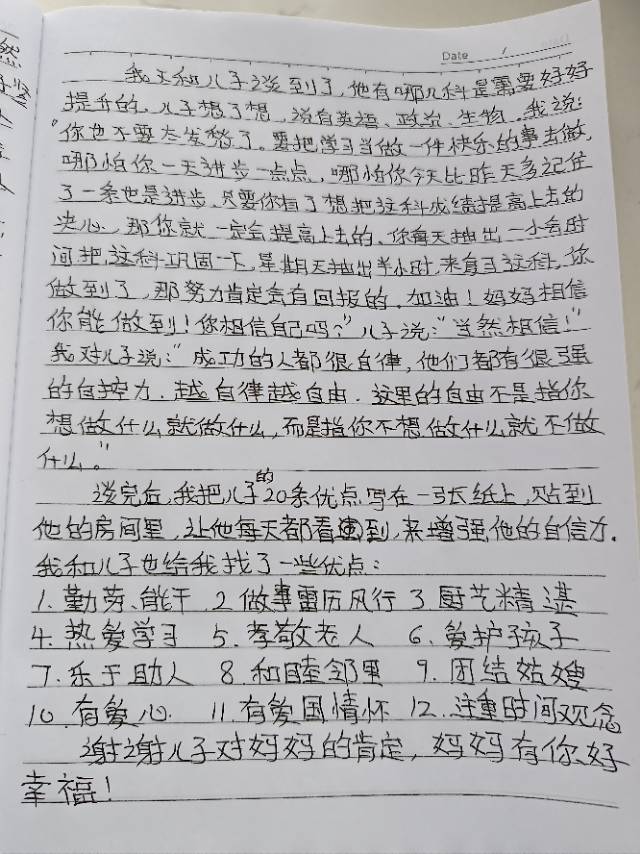 Date /
我又和儿子谈到了,他有哪几科是需要好好
提升的,儿子想了想,说有英语、政治、生物.我说:
"你也不要太发愁了。要把学习当做一件快乐的事去做,
哪怕你一天进步一点点,哪怕你今天比昨天多记住
了一条也是进步.只要你有了想把这科成绩提高上去的
决心,那你就一定会提高上去的、你每天抽出一小会时
间把这科巩固一下,星期天抽出半小时,来自习这科,你
做到了,那努力肯定会有回报的.加油!妈妈相信
你能做到!你相信自己吗?"儿子说:"当然相信!"
我对儿子说:"成功的人都很自律,他们都有很强
的自控力.越自律越自由.这里的自由不是指你
想做什么就做什么,而是指你不想做什么就不做
什么。"
谈完后,我把儿子的20条优点写在一张纸上,贴到
他的房间里,让他每天都看到,来增强他的自信力.
我和儿子也给我找了一些优点:
1.勤劳、能干 2做事雷厉风行 3厨艺精湛
4.热爱学习 5.孝敬老人 6.爱护孩子
7.乐于助人 8.和睦邻里 9.团结姑嫂
10.有爱心. 11.有爱国情怀 12.注重时间观念
谢谢儿子对妈妈的肯定,妈妈有你好
幸福!
然